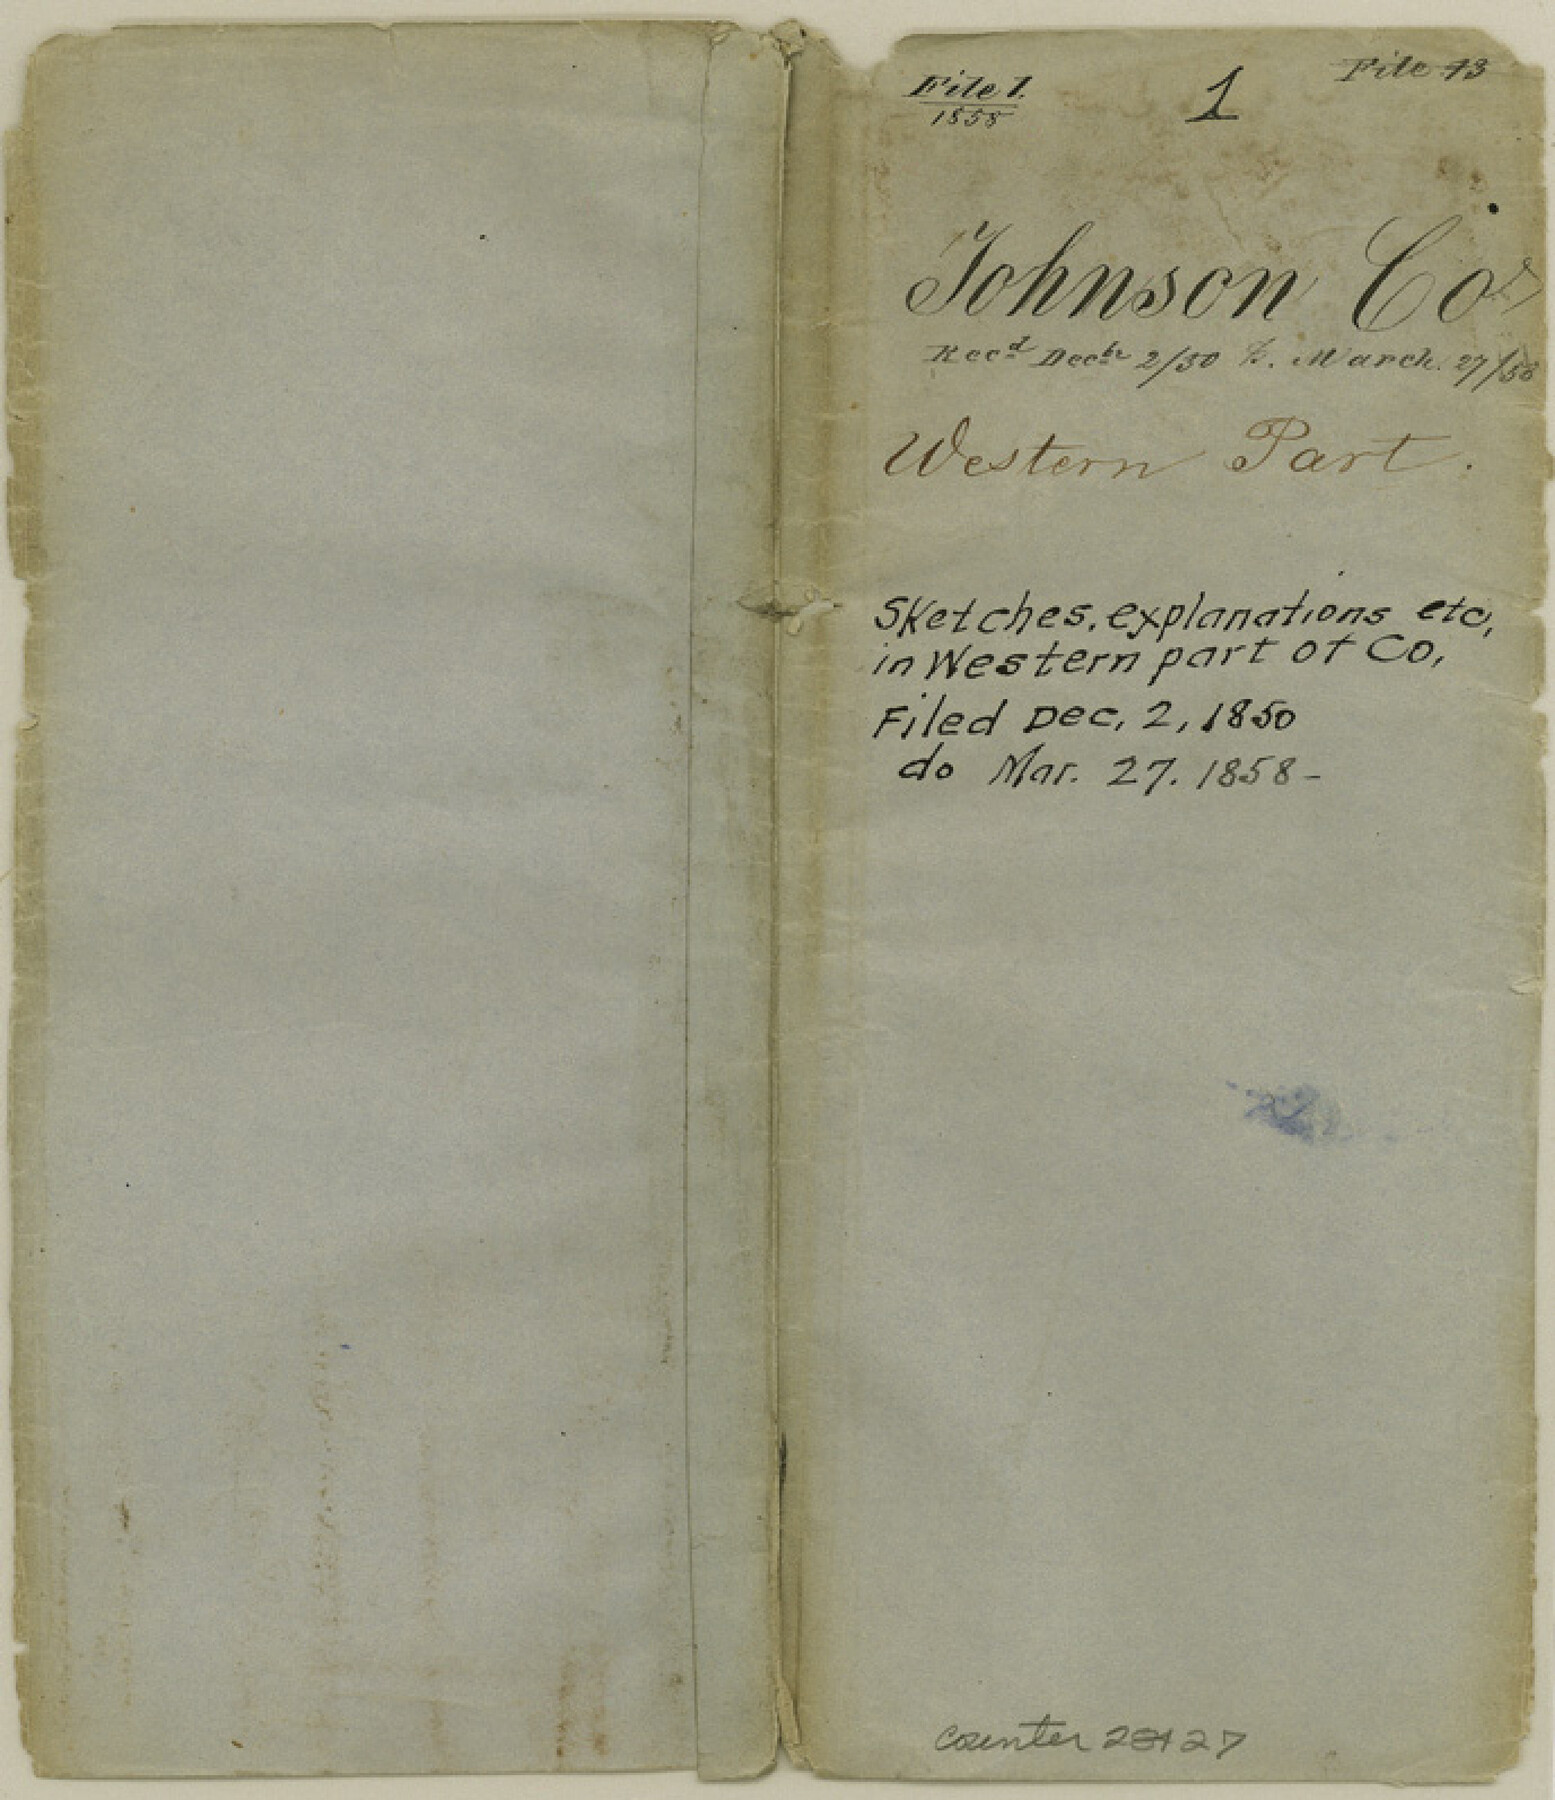 File 1.
1858
1
File 13
Johnson Co
Recd Decbr 2/50 & March 27/58
Western Part.
Sketches, explanations etc,
in Western part of Co,
Filed Dec, 2, 1850
do Mar. 27. 1858-
counter 28427